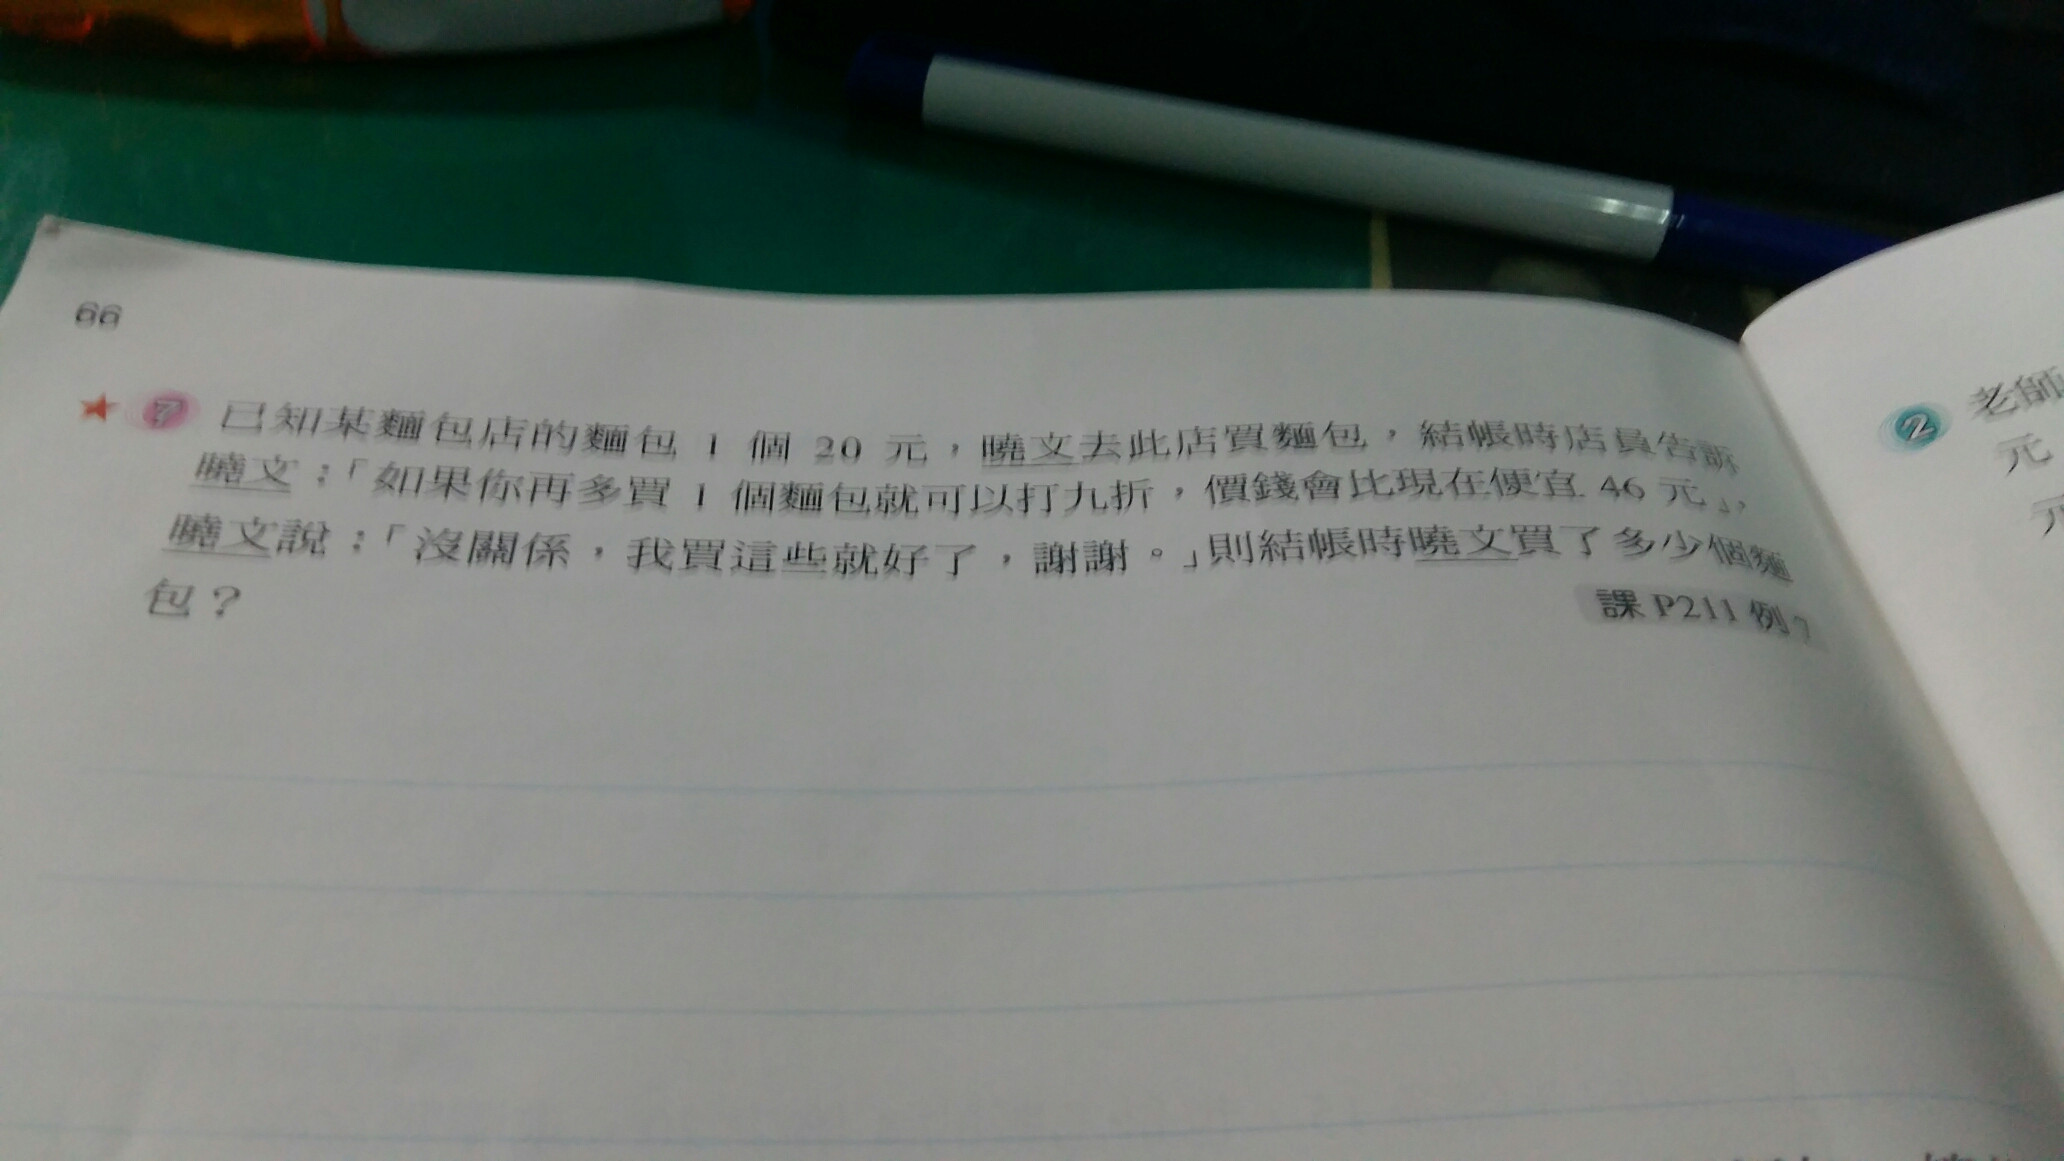 66
★ 7 已知某麵包店的麵包 1 個 20 元，曉文去此店買麵包，結帳時店員告訴
曉文：「如果你再多買 1 個麵包就可以打九折，價錢會比現在便宜 46 元」，
曉文說：「沒關係，我買這些就好了，謝謝。」則結帳時曉文買了多少個麵
包？
課 P211 例 7
2 老師
元
元